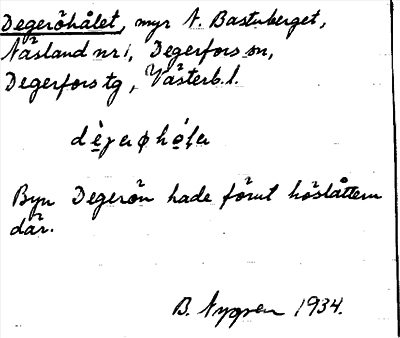 Degeröhålet, myr N. Bastuberget,
Näsland nr 1, Degerfors sn,
Degerfors tg, Västerb. l.
Byn Degerön hade förut höslåttern
där.
B. Nygren 1934.